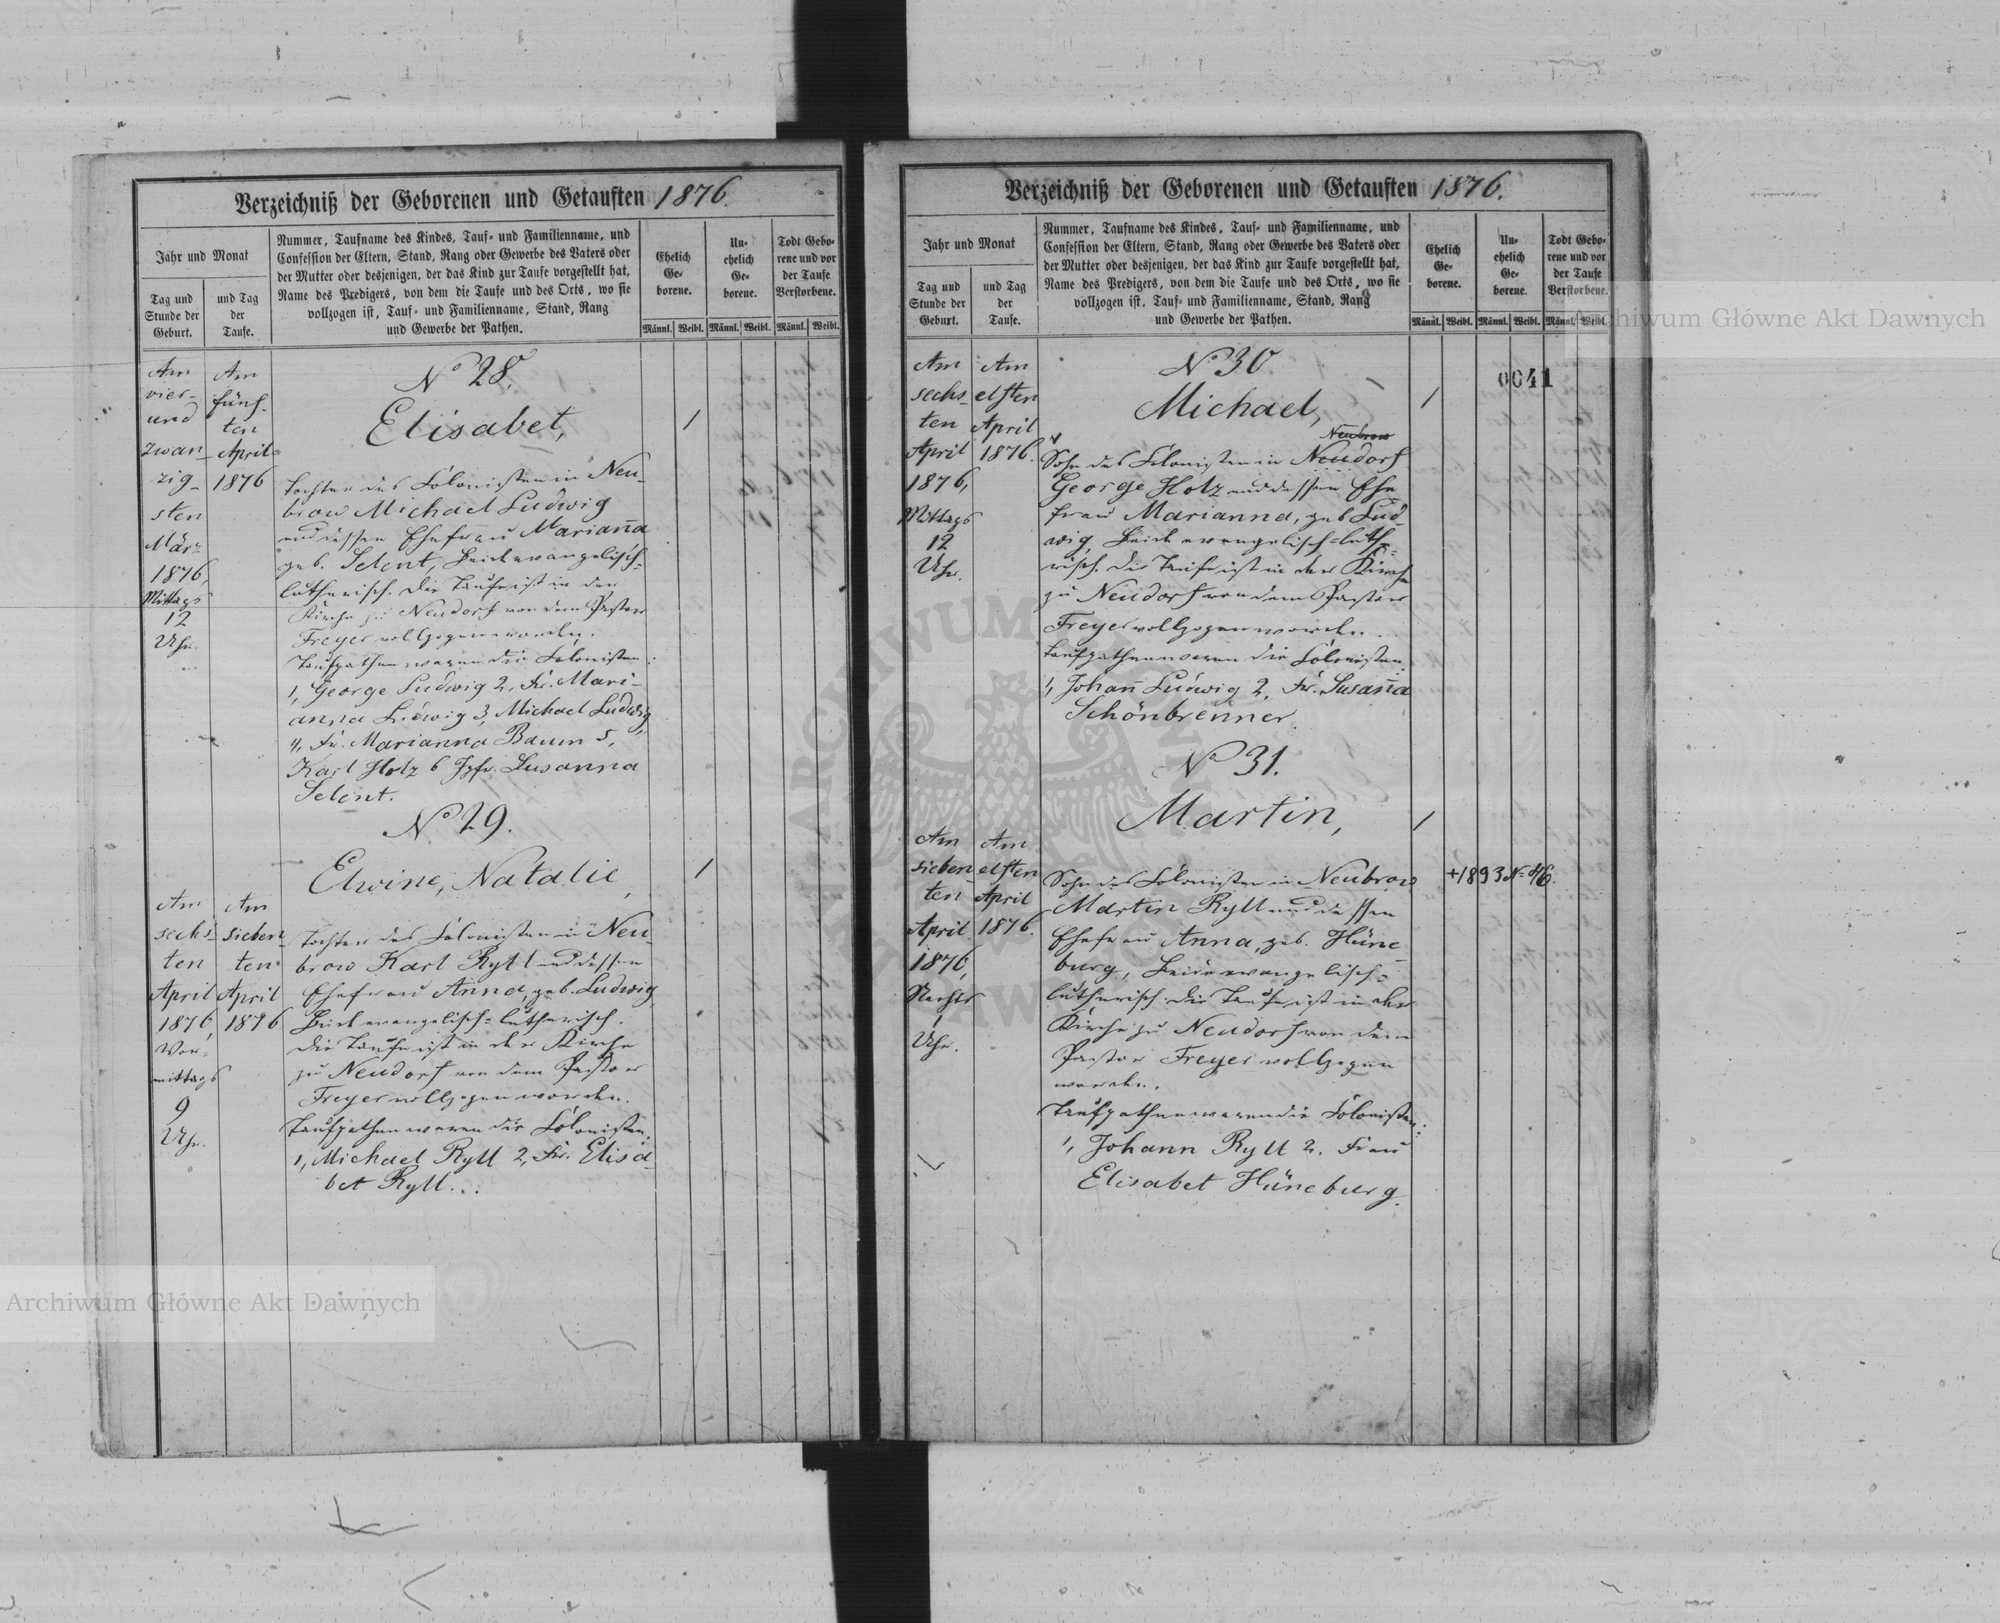 Verzeichniß der Geborenen und Getauften 1876.
Jahr und Monat
Tag und
Stunde der
Geburt.
und Tag
der
Taufe.
Nummer, Taufname des Kindes, Tauf- und Familienname, und
Confession der Eltern, Stand, Rang oder Gewerbe des Vaters oder
der Mutter oder desjenigen, der das Kind zur Taufe vorgestellt hat,
Name des Predigers, von dem die Taufe und des Orts, wo sie
vollzogen ist, Tauf- und Familienname, Stand, Rang
und Gewerbe der Pathen.
Ehelich
Ge-
borene.
Un-
ehelich
Ge-
borene.
Todt Gebo-
rene und vor
der Taufe
Verstorbene.
Männl. Weibl. Männl. Weibl. Männl. Weibl.
Am
vier-
und
zwan-
zig-
sten
März
1876,
Mittags
12
Uhr.
Am
fünf-
ten
April
1876
No 28.
Elisabet,
Tochter des Colonisten in Neu-
brow Michael Ludwig
und dessen Ehefrau Marian̄a
geb. Selent, Beide evangelisch-
lutherisch. Die Taufe ist in der
Kirche zu Neudorf von dem Pastor
Freyer vollzogen worden.
Taufpathen waren die Colonisten:
1, George Ludwig 2, Fr. Mari-
anna Ludwig 3, Michael Ludwig,
4, Fr. Marianna Baum 5,
Karl Hotz 6 Jgfr. Susanna
Selent.
/
No 29.
Elwine, Natalie,
Am
sechs-
ten
April
1876,
Vor-
mittags
9
Uhr.
Am
sieben-
ten
April
1876
Tochter des Colonisten in Neu-
brow Karl Ryll und dessen
Ehefrau Anna, geb. Ludwig
Beide evangelisch-lutherisch.
Die Taufe ist in der Kirche
zu Neudorf von dem Pastor
Freyer vollzogen worden.
Taufpathen waren die Colonisten:
1, Michael Ryll 2, Fr. Elisa-
bet Ryll.
/
Verzeichniß der Geborenen und Getauften 1876.
Jahr und Monat
Tag und
Stunde der
Geburt.
und Tag
der
Taufe.
Nummer, Taufname des Kindes, Tauf- und Familienname, und
Confession der Eltern, Stand, Rang oder Gewerbe des Vaters oder
der Mutter oder desjenigen, der das Kind zur Taufe vorgestellt hat,
Name des Predigers, von dem die Taufe und des Orts, wo sie
vollzogen ist, Tauf- und Familienname, Stand, Rang
und Gewerbe der Pathen.
Ehelich
Ge-
borene.
Un-
ehelich
Ge-
borene.
Todt Gebo-
rene und vor
der Taufe
Verstorbene.
Männl. Weibl. Männl. Weibl. Männl. Weibl.
0041
Am
sechs-
ten
April
1876,
Mittags
12
Uhr.
Am
elften
April
1876.
No 30
Michael,
Neubrow
Sohn des Colonisten in Neudorf
George Hotz und dessen Ehe
frau Marianna, geb Lud-
wig, Beide evangelisch luthe-
risch. Die Taufe ist in der Kirche
zu Neudorf von dem Pastor
Freyer vollzogen worden.
Taufpathen waren die Colonisten:
1, Johan̄ Ludwig 2, Fr. Susan̄a
Schönbrenner.
/
No 31.
Martin,
Am
sieben-
ten
April
1876,
Nachts
1
Uhr.
Am
elften
April
1876.
Sohn des Colonisten in Neubrow
Martin Ryll und dessen
Ehefrau Anna, geb. Hüne-
burg, Beide evangelisch-
lutherisch. Die Taufe ist in der
Kirche zu Neudorf von dem
Pastor Freyer vollzogen
worden.
Taufpathen waren die Colonisten:
1, Johann Ryll 2. Frau
Elisabet Hüneburg.
/
+1893 No 46.
Archiwum Główne Akt Dawnych
Archiwum Główne Akt Dawnych